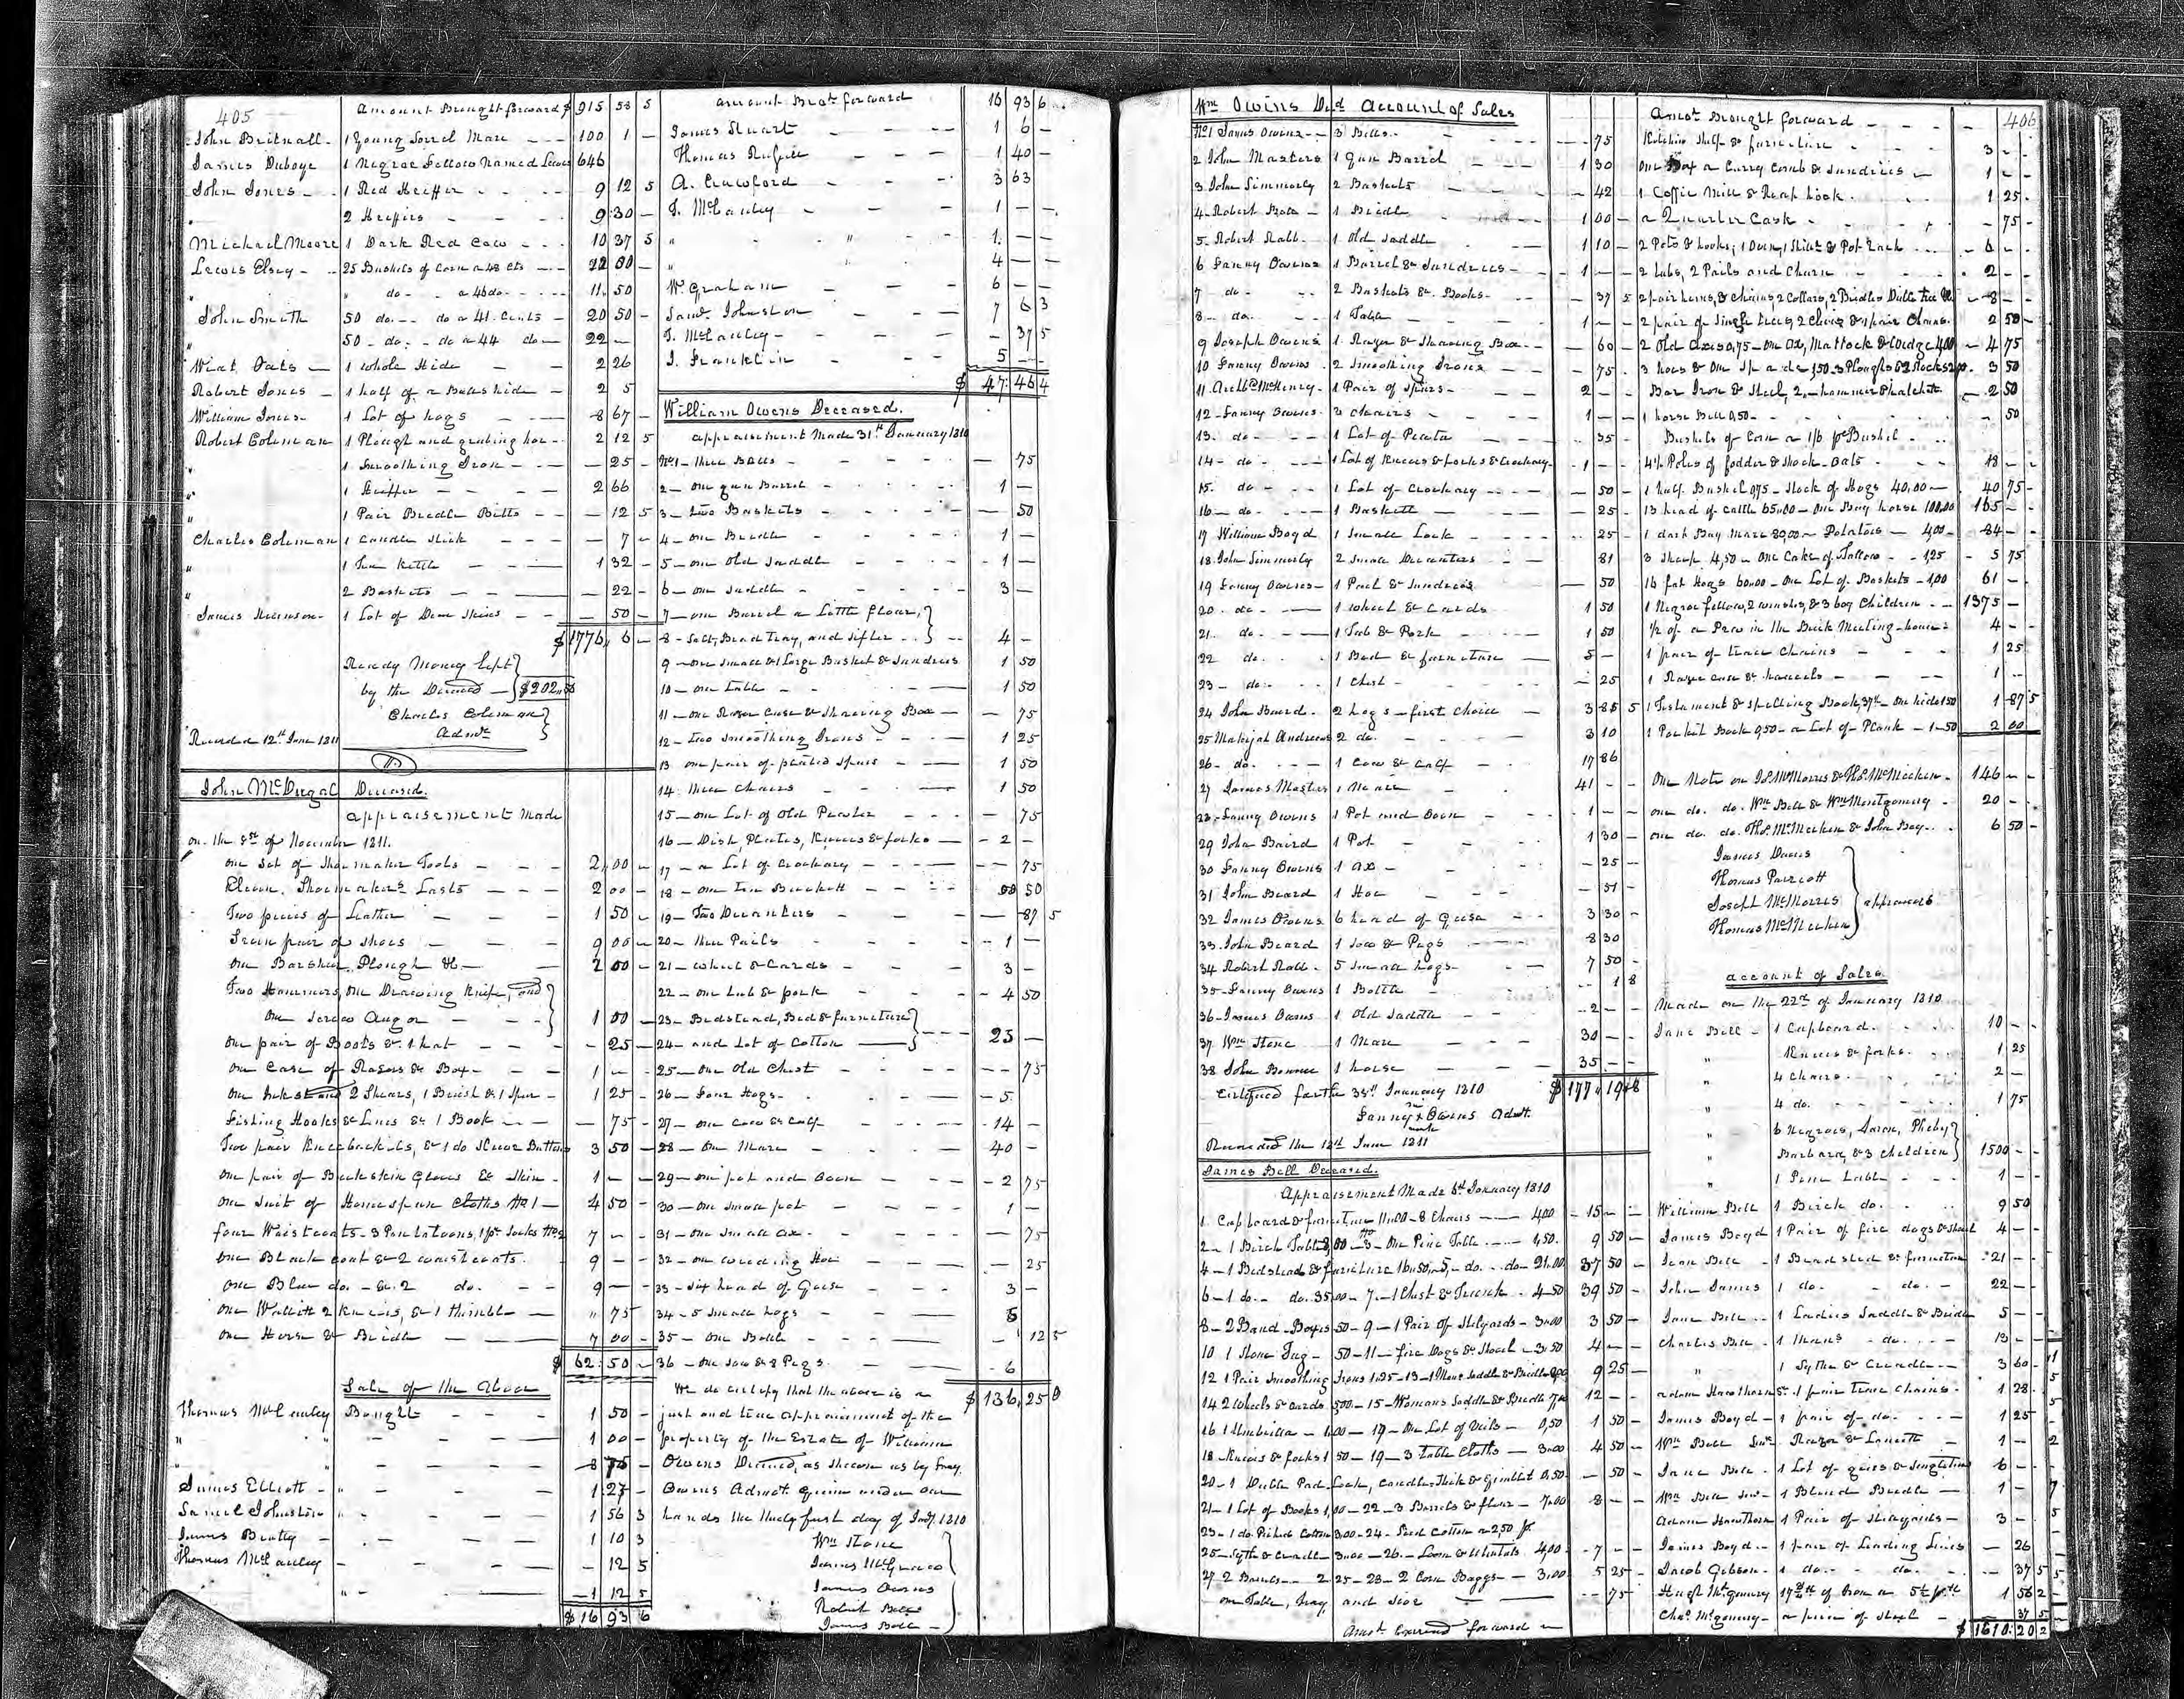 405
Amount Brought forward $ 915 58 5
John Britnall - 1 Young Sorrel Mare - - 100 1 -
James Duboye 1 Negroe Fellow Named Lewis 646
John Jones - - 1 Red Heiffer - - - 9 12 5
" 2 Heiffers - - - 9 30 -
Michael Moore 1 Dark Red Cow - - - 10 37 5
Lewis Elsey - - 25 Bushels of Corn a 48 Cts - - 12 00 -
" do - - a 46 do - - - 11 50
John Smith 50 do - - do a 41 Cents - 20 50 -
" 50 - do - - do a 44 do - 22 -
Wiat Oats - 1 whole Hide - - 2 26
Robert Jones - 1 half of a Bulls hide - 2 5
William Jones - 1 Lot of hogs - - 8 67 -
Robert Coleman 1 Plough and grubing hoe - - 2 12 5
" 1 Smoothing Iron - - - - 25 -
" 1 Heiffer - - - 2 66
" 1 Pair Bredle Bitts - - - 12 5
Charles Coleman 1 Candle Stick - - - - 7 -
" 1 Tea Kittle - - - 1 32 -
" 2 Baskets - - - - 22 -
James Stevinson - 1 Lot of Deer Skins - - - 50 -
$ 1776 6 -
Ready Money left
by the Deceased - $202.58
Charles Coleman
Admr
Recorded 12th June 1811
John McDugal Deceased.
appraisement Made
on the 8th of November 1811.
One Set of Shoemaker Tools - - - 2,00 -
Eleven Shoemakers Lasts - - - 2 00 -
Two pieces of Leather - - - 1 50 -
Seven pair of Shoes - - - 9 00 -
One Barshear Plough &c - - 2 00 -
Two Hammers, One Drawing Knife, and
One Screw Augor - - 1 00 -
One pair of Boots & 1 hat - - - - 25 -
One Case of Razors & Box - - 1 - -
One Inkstand 2 Shears, 1 Brush & 1 Spur - 1 25 -
Fishing Hooks & Lines & 1 Book - - - 75 -
Two pair Knee buckels, & 1 do Sleeve Buttons 3 50 -
One pair of Buckskin Gloves & Skin - 1 - -
One Suit of Homespun Cloths No 1 - 4 50 -
four Waistcoats - 3 Pantaloons, 1 pr. Socks No 2 7 - -
One Black coat & 2 waistcoats. 9 - -
One Blue do. - & 2 do. - 9 - -
One Wallett 2 Knives, & 1 thimble - " 75
One Horse & Bridle - - 7 00 -
$ 62.50 -
Sale of the above
Thomas McCauley Bought - - - 1 50 -
" " - - - - 1 00 -
" - - - - 8 75 -
James Elliott - " - - - 1.27 -
Samuel Johnston " - - - 1 56 3
James Beatty - " - - - 1 10 3
Thomas McCauley - - - - 12 5
" - - - 1 12 5
$ 16 93 6
amount Brot. forward 16 93 6
James Stuart - - - 1 6 -
Thomas - - - 1 40 -
A. Crawford - - - 3 63
J. McCauley - - - 1 - -
" - " - 1. - -
" " 4 - -
Wm Graham - - - 6 - -
Saml. Johnston - - - 7 6 3
J. McCauley - - - - 37 5
J. Franklin - - - 5 - -
$ 47 46 4
William Owens Deceased.
appraisement Made 31st January 1810
No 1 - three Bells - - - - - 75
2 - one gun Barrel - - - - 1 -
3 - two Baskets - - - - 50
4 - One Bridle - - - 1 -
5 - one Old Saddle - - - 1 -
6 - one Saddle - - - 3 -
7 - one Barrel a Little flour,
8 - Salt, Bread Tray, and Sifter - - 4 -
9 - one small & 1 Large Basket & Sundries 1 50
10 - one Table - - - 1 50
11 - one Razor Case & Shaving Box - - 75
12 - Two Smoothing Irons - - - 1 25
13 one pair of plated Spurs - - 1 50
14 three Chairs - - - 1 50
15 - one Lot of Old Pewter - - - 75
16 - Dish, Plates, Knives & forks - - 2 -
17 - a Lot of Crockary - - - 75
18 - One Tin Buckett - - - 50
19 - Two Decanters - - - 87 5
20 - three Pails - - - 1 -
21 - wheel & Cards - - - 3 -
22 - one Tub & pork - - - 4 50
23 - Bedstead, Bed & furniture
24 - and Lot of Cotton - - - 23 -
25 - One Old Chest - - - 75
26 - Four Hogs - - - 5.
27 - one Cow & Calf - - - 14 -
28 - One Mare - - - 40 -
29 - one pot and Oven - - - 2 75
30 - one Small pot - - - 1 -
31 - one Small ax - - - 75
32 - one weeding Hoe - - - 25
33 - Six head of Geese - - - 3 -
34 - 5 Small hogs - - - 5
35 - One Bottle - - - - 12 5
36 - One Sow & 8 Pigs - - - 6
$ 136,25 0
We do certify that the above is a
just and true appraisment of the
property of the Estate of William
Owens Deceased, as shewn us by Fany
Owens Admrt. given under our
hands the thirty first day of Jany. 1810
Wm Stone
James McGraw
James Owens
Robert Bell
James Bell
Wm Owens Decd Account of Sales
No 1 James Owens - - 3 Bells - - - 75
2 John Masters 1 Gun Barrel - - 1 30
3 John Simmerly 2 Baskets - - - 42
4 - Robert Bole - 1 Bridle - - 1 00 -
5. Robert Rabb - 1 Old Saddle - - 1 10 -
6 Fanny Owens 1 Barrel & Sundries - - 1 - -
7 do - - 2 Baskets & Books - - 37 5
8 - do. 1 Table - - 1 - -
9 Joseph Owens 1 Razor & Shaving Box - - - 60 -
10 Fanny Owens. 2 Smoothing Irons - - 75 -
11 Archbd McHenry - 1 Pair of Spurs - - 2 - -
12 - Fanny Owens. 3 Chairs - - - 1 - -
13. do - - 1 Lot of Pewter - - - 35 -
14 - do - - 1 Lot of Knives & forks & Crockary - 1 - -
15. do - - 1 Lot of Crockary - - - 50 -
16 - do - - 1 Baskett - - - 25 -
17 William Boyd 1 Small Lock - - - 25 -
18 John Simmerly 2 Small Decanters - - 81
19 Fanny Owens - 1 Pail & Sundries - 50
20. do - - 1 wheel & Cards 1 50
21. do - - 1 Tub & Pork - - - 1 50
22 do. - - 1 Bed & furniture - 5 -
23 - do - - 1 Chest - - - 25
24 John Beard. - 2 hogs - first Choice - 3 85 5
25 Andrews 2 do. - - 3 10
26 - do. - - 1 Cow & Calf - 17 86
27 James Masters 1 Mare - - 41 -
28 - Fanny Owens 1 Pot and Oven - - 1 - -
29 John Baird 1 Pot - 1 30 -
30 Fanny Owens 1 ax - - - 25 -
31 John Beard 1 Hoe - - - 51 -
32 James Owens 6 head of Geese - - 3 30 -
33. John Beard 1 Sow & Pigs - - 8 30
34 Robert Rabb - 5 Small hogs - 7 50 -
35 - Fanny Owens 1 Bottle - - 1 8
36 - James Owens 1 Old Saddle - - 2 - -
37 Wm Stone 1 Mare - - - 30 - -
38 John 1 horse - - 35 - -
$ 177 19 8
Certifyed January 1810
Fanny x Owens Admt.
mark
Recorded the 12th June 1811
James Bell Deceased.
Appraisement Made 5th January 1810
1. Cupboard & furniture 11.00 - 8 Chairs - - 4.00 - 15 - -
2 - 1 Birch Table 8,00 - 3 - One Pine Table - - 1,50. 9 50 -
4 - 1 Bedstead & furniture 16.50, - 5, - do. - do - 21.00 37 50 -
6 - 1 do. - do. 35.00 - 7 - 1 Chest & Trunk - 4.50 39 50 -
8 - 2 Band Boxes 50 - 9 - 1 Pair of Stilyards - 3.00 3 50 -
10 1 Stone Jug - 50 - 11 - fire Dogs & Shovel - 3.50 4 - -
12 1 Pair Smoothing Irons 1.25 - 13 - 1 Mans Saddle & Bridle 8.00 9 25 -
14 2 Wheels & Cards 5.00 - 15 - Womans Saddle & Bridle 7.00 12 - -
16 1 Umbrella - 1.00 - 17 - One Lot of Vials - 0,50 1 50 -
18 - Knives & forks 1 50 - 19 - 3 Table Cloths - 3.00 4 50 -
20 - 1 Duble Pad Lock, Candlestick & Gimblet 0,50 - 50 -
21 - 1 Lot of Books 1,00 - 22 - 3 Barrels & flour - 7.00 8 - -
23 - 1 do. Picked Cotton 3.00 - 24 - Seed Cotton a 2,50 pr.
25 - Syth & Cradle - 3.00 - 26 - Loom & Utentals 4,00 - 7 - -
27 2 - - 2 25 - 28 - 2 Corn Baggs - 3.00 5 25 -
One Table, tray and Sive - - - 75 -
Amot. Carried forward -
406
Amot. Brought forward - - -
Kitchen Shelf & furniture - - 3 - -
One Box a Curry Comb & Sundries - 1 - -
1 Coffee Mill & Reap hook. - - 1 25 -
a Quarter Cask - - - 75 -
2 Pots & hooks, 1 Oven, 1 Skillet & Pot Rack - - 6 - -
2 Tubs, 2 Pails and Churn - - - 2 - -
2 pair hems, & Chains, 2 Collars, 2 Bridles Duble Tree &c - 8 - -
2 pair of Single trees, 2 Clevis & 1 pair Chains. 2 50 -
2 Old Axes 0,75 - One Ox, Mattock & Wedge 4.00 - 4 75
3 hoes & One Spade 1,50 - 3 Ploughs & 2 Stocks 2.00 3 50
Bar Iron & Steel, 2, - hammer & hatchet - 2 50
1 horse Bell 0,50 - - - 50
Bushels of Corn a 1/6 pr Bushel - -
4½ Poles of fodder & Shock Oats - - 18 - -
1 half Bushel 0.75 - Stock of Hogs 40,00 - 40 75 -
13 head of Cattle 65.00 - One Bay horse 100,00 165 - -
1 dark Bay Mare 80,00 - Potatoes - 4,00 - 84 - -
3 Sheep 4,50 - One Cake of Tallow - - 1,25 - 5 75
16 fat Hogs 60.00 - One Lot of Baskets - 1,00 61 -
1 Negroe fellow, 2 wenches, & 3 boy Children - - 1375 -
½ of a Pew in the Brick Meeting-house - 4 -
1 pair of trace Chains - - - 1 25
1 Razor case & - - - 1 -
1 Testament & Spelling Book, 37½ - One hide 1.50 1 87 5
1 Pockit Book 0,50 - a Lot of Plank - 1.50 2 00
One Note on Js McMorris & Ths. McMeekin - 146 - -
one do. do. Wm Bell & Wm Montgomery - 20 - -
one do. do. Ths. McMeekin & John Bay - - 6 50 -
James Davis
Thomas Parrott
Joseph McMorris
Thomas McMeekin
appraisers
account of Sales
Made on the 22nd of January 1810
Jane Bell - 1 Cupboard. - - 10 - -
" Knives & forks. - - 1 25
" 4 Chairs - - 2 -
" 4 do. - - - 1 75
" 6 Negroes, Aaron, Pheby
" Barbara, & 3 Children 1500 - -
" 1 Pine Table - - 1 - -
William Bell 1 Birch do. - - 9 50
James Boyd 1 Pair of fire dogs & Shovel 4 - -
Jean Bell - 1 Beadsted & furniture 21 - -
John James 1 do. - do. - 22 - -
Jane Bell - 1 Ladies Saddle & Bridle 5 - -
Charles Bell - 1 Mans - do. - - 13 - -
" 1 Sythe & Craddle - - 3 60 -
Adam Hawthorn Sr. 1 pair trace Chains - 1 28 -
James Boyd - 1 pair of - do. - - 1 25
Wm Bell Senr. Razor & - 1 -
Jane Bell - 1 Lot of gears & Singletrees 6 - -
Wm Bell Senr - 1 Blind Bredle - 1 -
Adam Hawthorn 1 Pair of Stilyards - 3 -
James Boyd - 1 pair of Leading Lines - 26
Jacob Gibson - 1 do. - - do. - - 37 5
Hugh Mtgomery 17 lb of Iron a 5½ pr lb 1 56 2
Chas. Mtgomery - a piece of Steel - 37 5
$ 1610.20 2